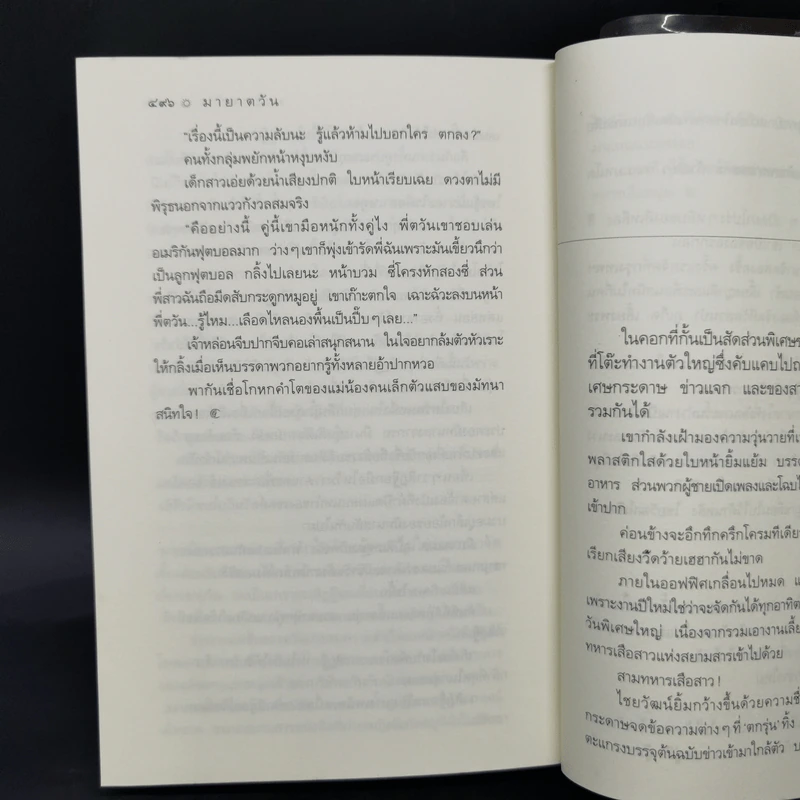 ๔๙๖ ๏ มายาตวัน
"เรื่องนี้เป็นความลับนะ รู้แล้วห้ามไปบอกใคร ตกลง?"
คนทั้งกลุ่มพยักหน้าหงุบหงับ
เด็กสาวเอ่ยด้วยน้ำเสียงปกติ ใบหน้าเรียบเฉย ดวงตาไม่มี
พิรุธนอกจากแววกังวลสมจริง
"คืออย่างนี้ คู่นี้เขามือหนักทั้งคู่ไง พี่ตวันเขาชอบเล่น
อเมริกันฟุตบอลมาก ว่างๆ เขาก็พุ่งเข้ารัดพี่ฉันเพราะมันเขี้ยวนึกว่า
เป็นลูกฟุตบอล กลิ้งไปเลยนะ หน้าบวม ซี่โครงหักสองซี่ ส่วน
พี่สาวฉันถือมีดสับกระดูกหมูอยู่ เขาเก๊าะตกใจ เฉาะฉัวะลงบนหน้า
พี่ตวัน...รู้ไหม...เลือดไหลนองพื้นเป็นปี๊บๆ เลย..."
เจ้าหล่อนจีบปากจีบคอเล่าสนุกสนาน ในใจอยากล้มตัวหัวเราะ
ให้กลิ้งเมื่อเห็นบรรดาพวกอยากรู้ทั้งหลายอ้าปากหวอ
พากันเชื่อโกหกคำโตของแม่น้องคนเล็กตัวแสบของมัทนา
สนิทใจ!
ในคอกที่กั้นเป็นสัดส่วนพิเศษ
ที่โต๊ะทำงานตัวใหญ่ซึ่งคับแคบไป
เศษกระดาษ ข่าวแจก และของ
รวมกันได้
เขากำลังเฝ้ามองความวุ่นวายที่
พลาสติกใสด้วยใบหน้ายิ้มแย้ม
อาหาร ส่วนพวกผู้ชายเปิดเพลงและโฉบ
เข้าปาก
ค่อนข้างจะอึกทึกครึกโครมทีเดียว
เรียกเสียงวี้ดว้ายเฮฮากันไม่ขาด
ภายในออฟฟิศเกลื่อนไปหมด
เพราะงานปีใหม่ใช่ว่าจะจัดกันได้ทุกอาทิต
วันพิเศษใหญ่ เนื่องจากรวมเอางานเลี้ย
ทหารเสือสาวแห่งสยามสารเข้าไปด้วย
สามทหารเสือสาว!
ไชยวัฒน์ยิ้มกว้างขึ้นด้วยความ
กระดาษจดข้อความต่างๆ ที่ 'ตกรุ่น' ทิ้ง
ตะแกรงบรรจุต้นฉบับข่าวเข้ามาใกล้ตัว